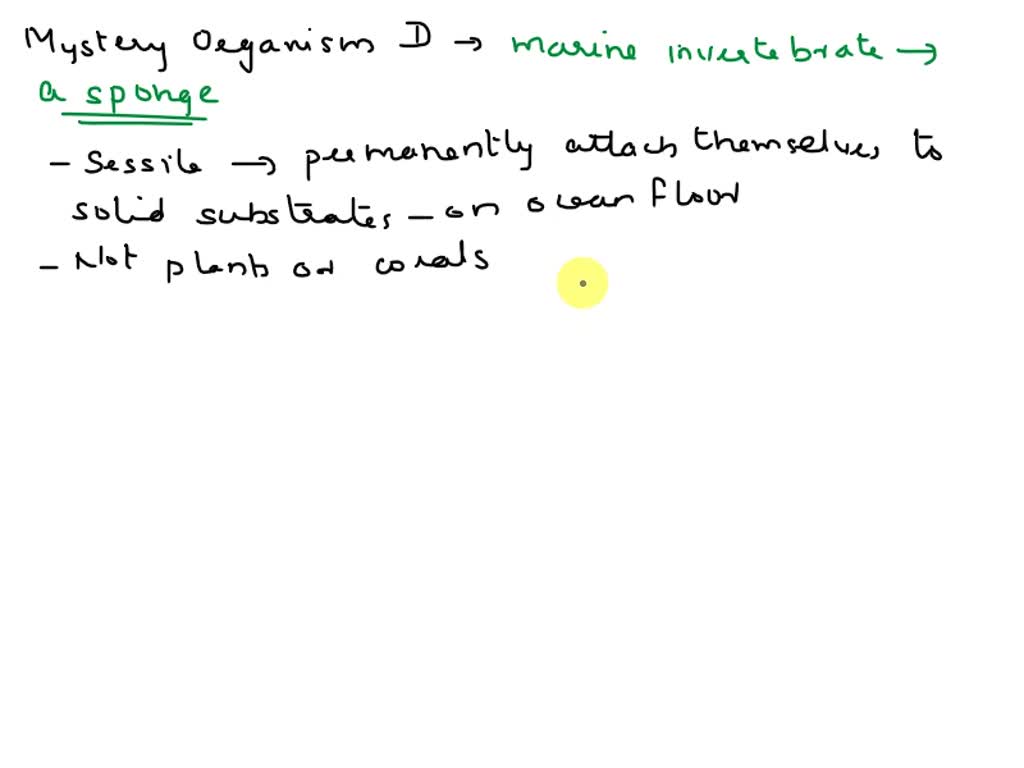 Mystery Organism D → marine invertebrate →
a sponge
- Sessile → permanently attach themselves to
solid substrates - on ocean floor
- Not plants or corals